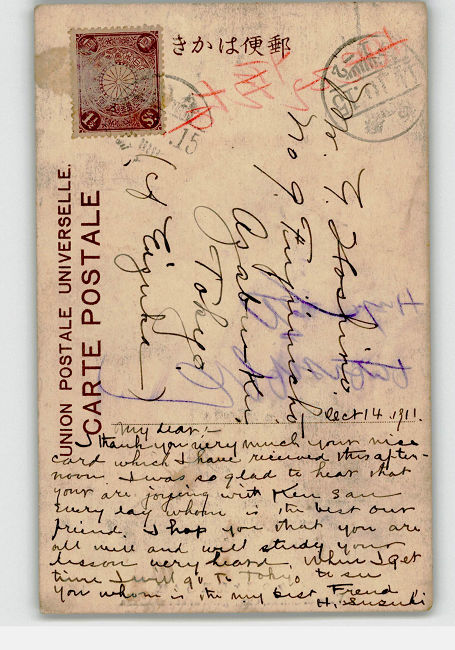 きかは便郵
UNION POSTALE UNIVERSELLE.
CARTE POSTALE
1½ Sn
15
Mr. Y. Hoshino.
No 9. Fujimicho
Azabu-ku.
Tokyo.
(A Eigoka)
Oct 14. 1911.
My dear:-
Thank you very much your nice
card which I have received this after-
noon. I was so glad to hear that
your are joying with Ken San
every day whom is the best our
friend. I hop you that you are
all well and will study your
lesson very heard. When I get
time I will go to Tokyo to see
you whom is the my best Frend
H. Suzuki